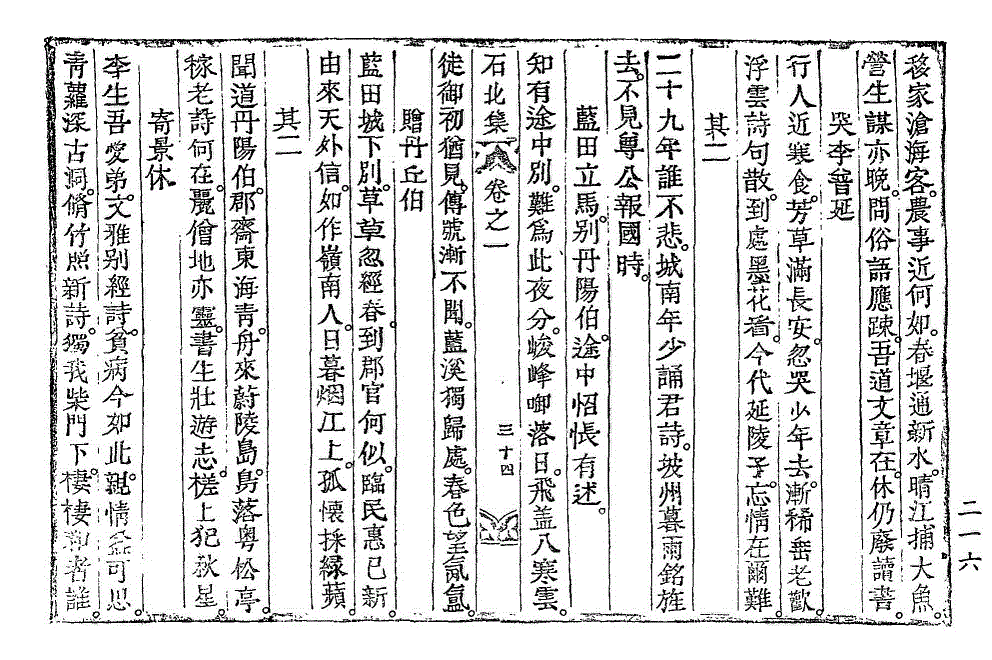 移家滄海客農事近何如春堰通新水晴江捕大魚
營生謀亦晚問俗語應踈吾道文章在休仍廢讀書
哭李普延
行人近寒食芳草滿長安忽哭少年去漸稀垂老歡
浮雲詩句散到處墨花乾今代延陵子忘情在爾難
其二
二十九年誰不悲城南年少誦君詩坡州暮雨銘旌
去不見尊公報國時
藍田立馬別丹陽伯途中怊悵有述
知有途中別難爲此夜分峻峰啣落日飛盖入寒雲
石北集 卷之一 三十四
徒御初猶見傳號漸不聞藍溪獨歸處春色望氤氳
贈丹丘伯
藍田城下別草草忽經春到郡官何似臨民惠已新
由來天外信如作嶺南人日暮烟江上孤懷採綠蘋
其二
聞道丹陽伯郡齋東海靑舟來蔚陵島舃落粤松亭
稼老詩何在僧地亦靈書生壯遊志槎上犯秋星
寄景休
李生吾愛弟文雅別經詩貧病今如此親情益可思
靑蘿深古洞脩竹照新詩獨我柴門下棲棲和者誰
二一六